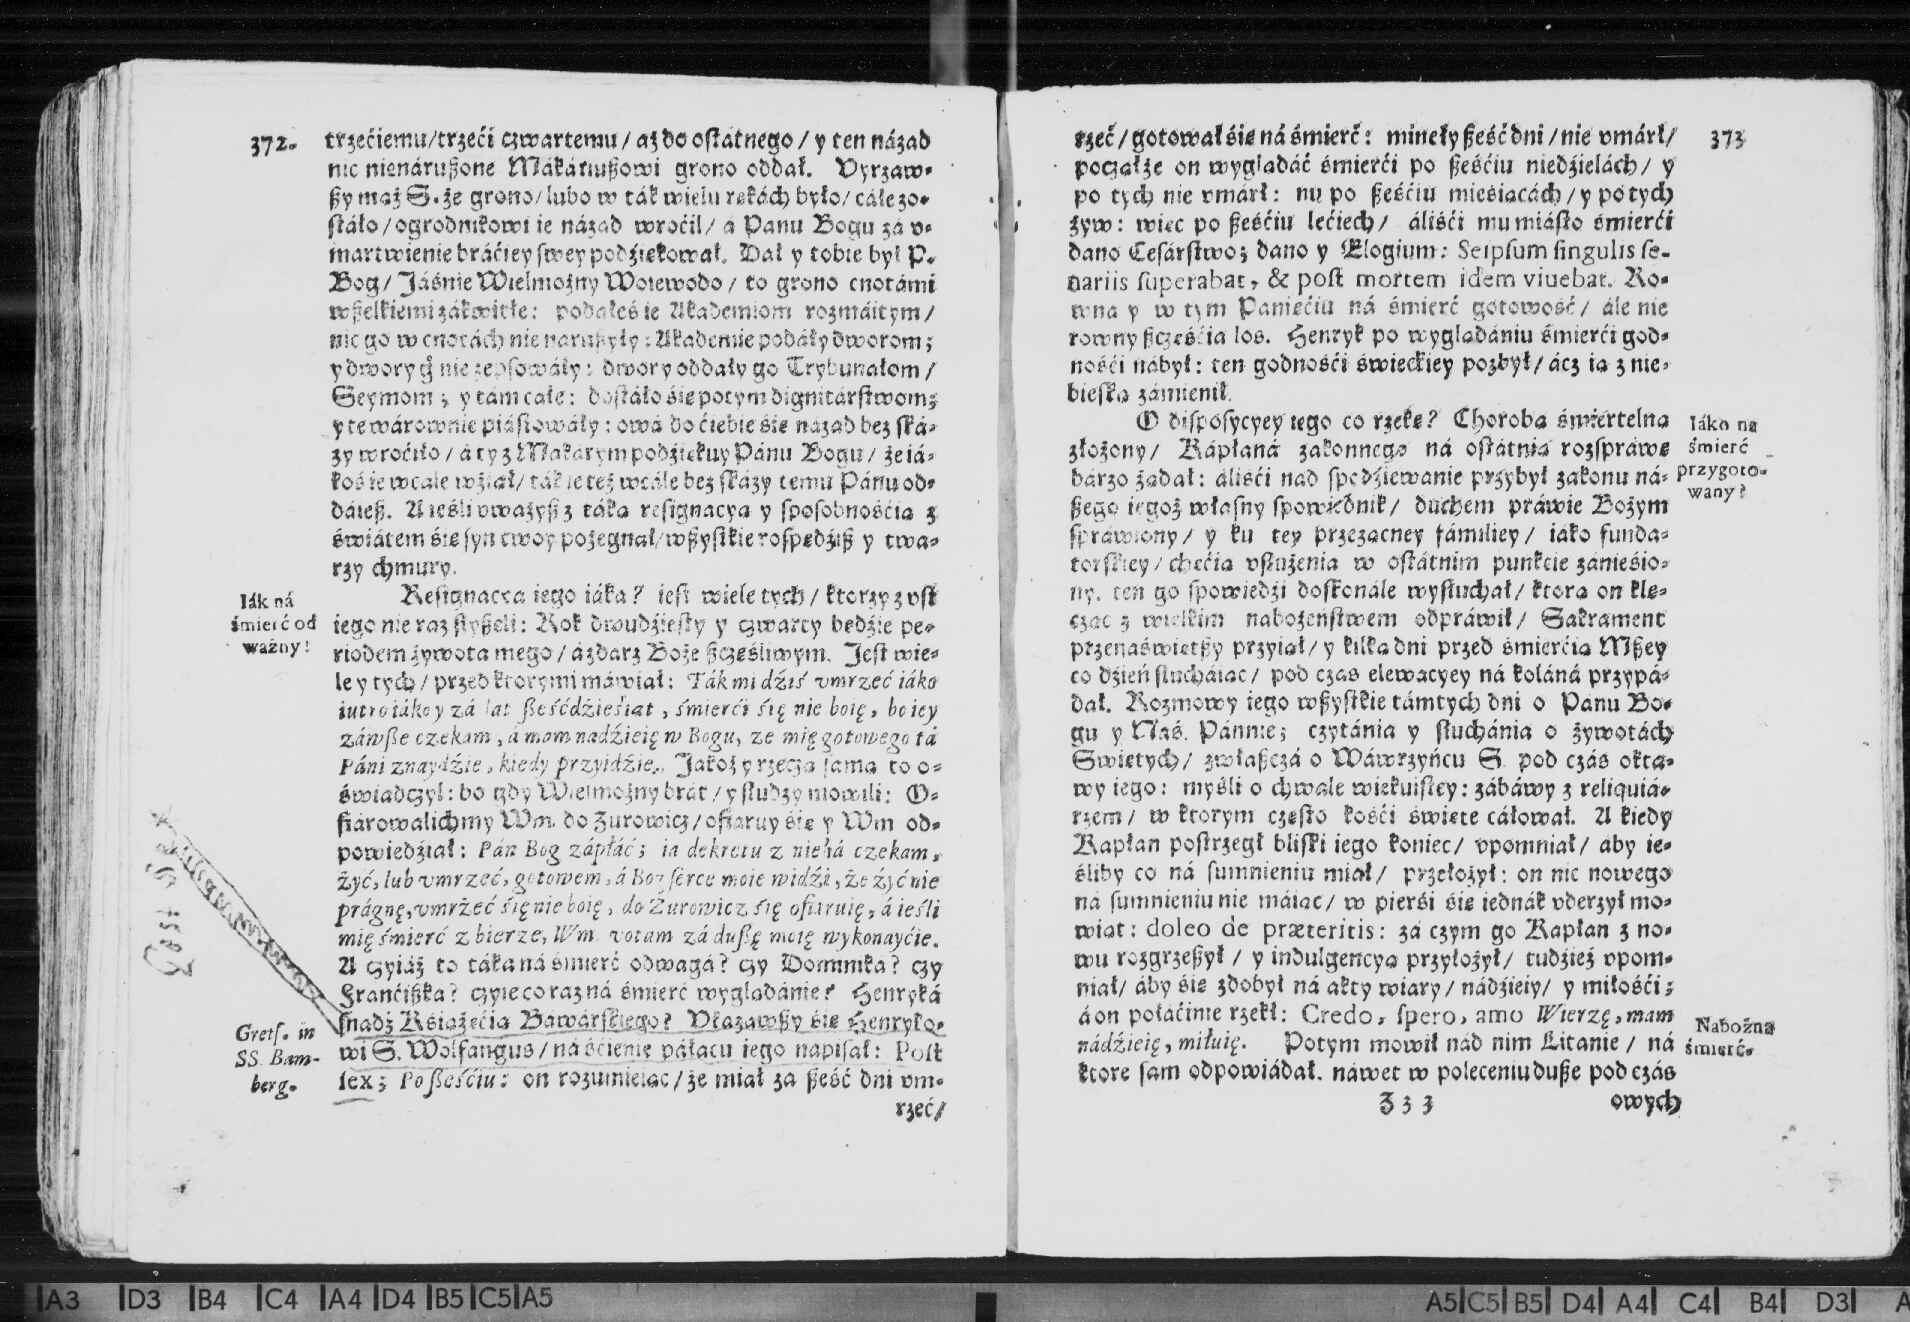 372.
trzećiemu/trzeći czwartemu/ aż do ostátnego/ y ten názad
nic nienárußone Mákáriußowi grono oddał. Vyrzaw-
ßy mąż S. że grono/ lubo w ták wielu rękách było/ cáłe zo-
stáło/ ogrodnikowi ie názad wroćił/ á Pánu Bogu zá v-
martwienie bráćiey swey podźiękował. Dał y tobie był P.
Bog/ Jáśnie Wielmożny Woiewodo/ to grono cnotámi
wßelkiemi zákwitłe: podałeś ie Akademiom rozmáitym/
nic go w cnotách nie narußyły: Akademie podáły dworom;
y dwory gͦ nie zepsowáły: dwory oddały go Trybunałom/
Seymom; y tám całe: dostáło się potym dignitárstwom;
y te wárownie piástowáły: owá do ćiebie się názad bez ská-
zy wroćiło/ á ty z Makárym podźiękuy Pánu Bogu/ że iá-
koś ie wcale wźiął/ ták ie też wcále bez skázy temu Pánu od-
dáieß. A ieśli vważyß z táką resignacyą y sposobnośćią z
świátem się syn twoy pożegnał/ wßystkie rospędźiß y twa-
rzy chmury.
Iák ná
śmierć od
ważny!
Resignacya iego iáka? iest wiele tych/ ktorzy z vst
iego nie raz słyßeli: Rok dwudźiesty y czwarty będźie pe-
riodem żywota mego/ á zdarz Boże ßczęśliwym. Jest wie-
le y tych/ przed ktorymi máwiał: Ták mi dźiś vmrzeć iáko
iutro iáko y zá lat ßeśćdźieśiąt, śmierći się nie boię, bo iey
záwße czekam, á mam nadźieię w Bogu, ze mię gotowego tá
Páni znaydźie, kiedy przyidźie. Jakoż y rzecza sama to o-
świadczył: bo gdy Wielmożny brát/ y słudzy mowili: O-
fiarowalichmy Wm. do Zurowicz/ ofiaruy się y Wm od-
powiedźiał: Pán Bog zápłáć; ia dekretu z niebá czekam,
żyć, lub vmrzeć, gotowem, á Bog serce moie widźi, że żyć nie
prágnę, vmrżeć się nie boię, do Zurowicz się ofiaruię, á ieśli
mię śmierć zbierze, Wm. votum zá dußę moię wykonayćie.
A czyiáż to táka ná śmierć odwagá? czy Dominika? czy
Fránćißka? czyie co raz ná śmierć wyglądánie? Henryká
snadź Książęćia Báwárskiego? Vkazawßy się Henryko-
wi S. Wolfangus/ ná śćienie páłacu iego napisał: Post
sex; Po ßeśćiu: on rozumieiąc/ że miał za ßeść dni vm-
rzeć/
Grets. in
SS. Bam-
berg.
373
rzeć/ gotował się ná śmierć: minęły ßeść dni/ nie vmárł/
począł że on wyglądáć śmierći po ßeśćiu niedźielách/ y
po tych nie vmárł: nu po ßeśćiu mieśiącách/ y po tych
żyw: więc po ßeśćiu lećiech/ áliśći mu miásto śmierći
dano Cesárstwo; dano y Elogium: Seipsum singulis se-
nariis superabat, & post mortem idem viuebat. Ro-
wna y w tym Pánięćiu ná śmierć gotowość/ ále nie
rowny ßczęśćia los. Henryk po wyglądániu śmierći god-
nośći nábył: ten godnośći świeckiey pozbył/ ácz ią z nie-
bieską zámienił.
O disposycyey iego co rzekę? Chorobą śmiertelną
złożony/ Kápłaná zakonnego ná ostátnią rozspráwę
bárzo żądał: áliśći nád spodźiewanie przybył zakonu ná-
ßego iegoż własny spowiednik/ duchem práwie Bożym
spráwiony/ y ku tey przezacney fámiliey/ iáko funda-
torskiey/ chęćią vsłużenia w ostátnim punkcie zánieśio-
ny. ten go spowiedźi doskonále wysłuchał/ ktorą on klę-
cząc z wielkim nabożeństwem odpráwił/ Sákrament
przenaświętßy przyiął/ y kilka dni przed śmierćią Mßey
co dźień słucháiąc/ pod czas elewacyey ná koláná przypá-
dał. Rozmowy iego wßystkie támtych dni o Pánu Bo-
gu y Naś. Pánnie; czytánia y słuchánia o żywotách
Swiętych/ zwłaßczá o Wáwrzyńcu S. pod czás oktá-
wy iego: myśli o chwale wiekuistey: zábáwy z reliquiá-
rzem/ w ktorym często kośći święte cáłował. A kiedy
Kapłan postrzegł bliski iego koniec/ vpomniał/ áby ie-
śliby co ná sumnieniu miał/ przełożył: on nic nowego
ná sumnieniu nie máiąc/ w pierśi się iednák vderzył mo-
wiąc: doleo de præteritis: zá czym go Kapłan z no-
wu rozgrzeßył/ y indulgencyą przyłożył/ tudźież vpom-
niał/ áby się zdobył ná akty wiary/ nádźieiy/ y miłośći;
á on połáćinie rzekł: Credo, spero, amo Wierzę, mam
nádźieię, miłuię. Potym mowił nád nim Litanie/ ná
ktore sam odpowiádał. náwet w poleceniu duße pod czás
Zzz
owych
Iáko na
śmierć
przygoto-
wany?
Nabożna
śmierć.
A3 D3 B4 C4 A4 D4 B5 C5 A5
A5 C5 B5 D4 A4 C4 B4 D3 A